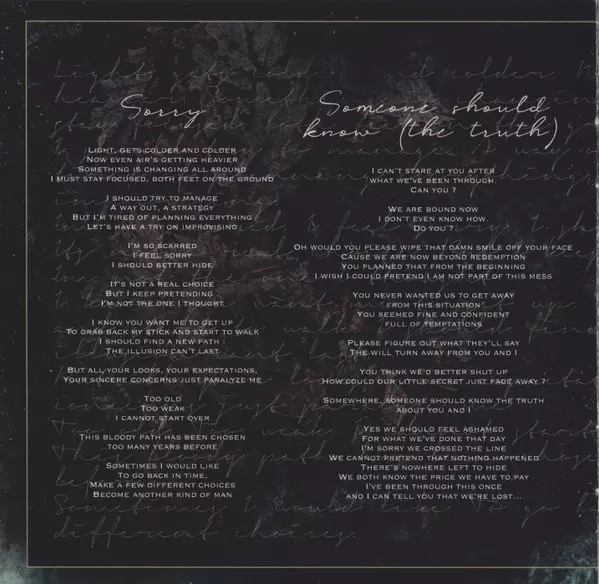 Sorry
Light, gets colder and colder
Now even air's getting heavier
Something is changing all around
I must stay focused, both feet on the ground
I should try to manage
A way out, a strategy
But I'm tired of planning everything
Let's have a try on improvising
I'm so scarred
I feel sorry
I should better hide
It's not a real choice
But I keep pretending
I'm not the one I thought
I know you want me to get up
To grab back my stick and start to walk
I should find a new path
The illusion can't last
But all your looks, your expectations,
Your sincere concerns just paralyze me
Too old
Too weak
I cannot start over
This bloody path has been chosen
too many years before
Sometimes I would like
To go back in time,
Make a few different choices
Become another kind of man
Someone should
know (the truth)
I can't stare at you after
what we've been through.
Can you ?
We are bound now
I don't even know how.
Do you ?
Oh would you please wipe that damn smile off your face
Cause we are now beyond redemption
You planned that from the beginning
I wish I could pretend I am not part of this mess
You never wanted us to get away
from this situation
You seemed fine and confident
full of temptations
Please figure out what they'll say
The will turn away from you and I
You think we'd better shut up
How could our little secret just fade away ?
Somewhere, someone should know the truth
about you and I
Yes we should feel ashamed
For what we've done that day
I'm sorry we crossed the line
We cannot pretend that nothing happened
There's nowhere left to hide
We both know the price we have to pay
I've been through this once
and I can tell you that we're lost...